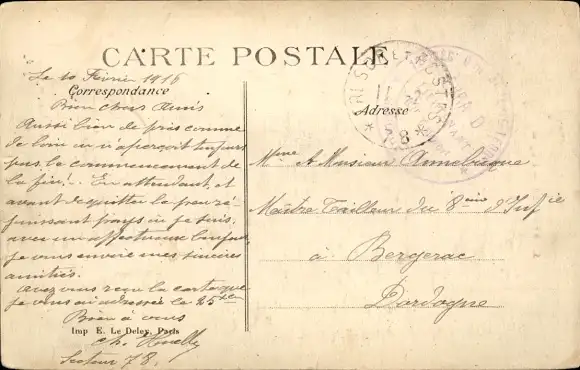 CARTE POSTALE
Le 10 Février 1916
Correspondance
Bien chers Amis
Aussi bien de près comme
de loin on n'aperçoit toujours
pas le commencement de
la fin!.. En attendant, et
avant de quitter le peu ré-
jouissant pays où je suis,
avec un affectueux bonjour,
je vous envoie mes sincères
amitiés.
Avez vous reçu la carte que
je vous ai adressée le 25
Bien à vous
Imp E. Le Deley, Paris
Ch.
Secteur 78.
Adresse
TRESOR ET POSTES
11
78
Mme & Monsieur
Maître Tailleur du 8eme d'Infie
à Bergerac
Dordogne